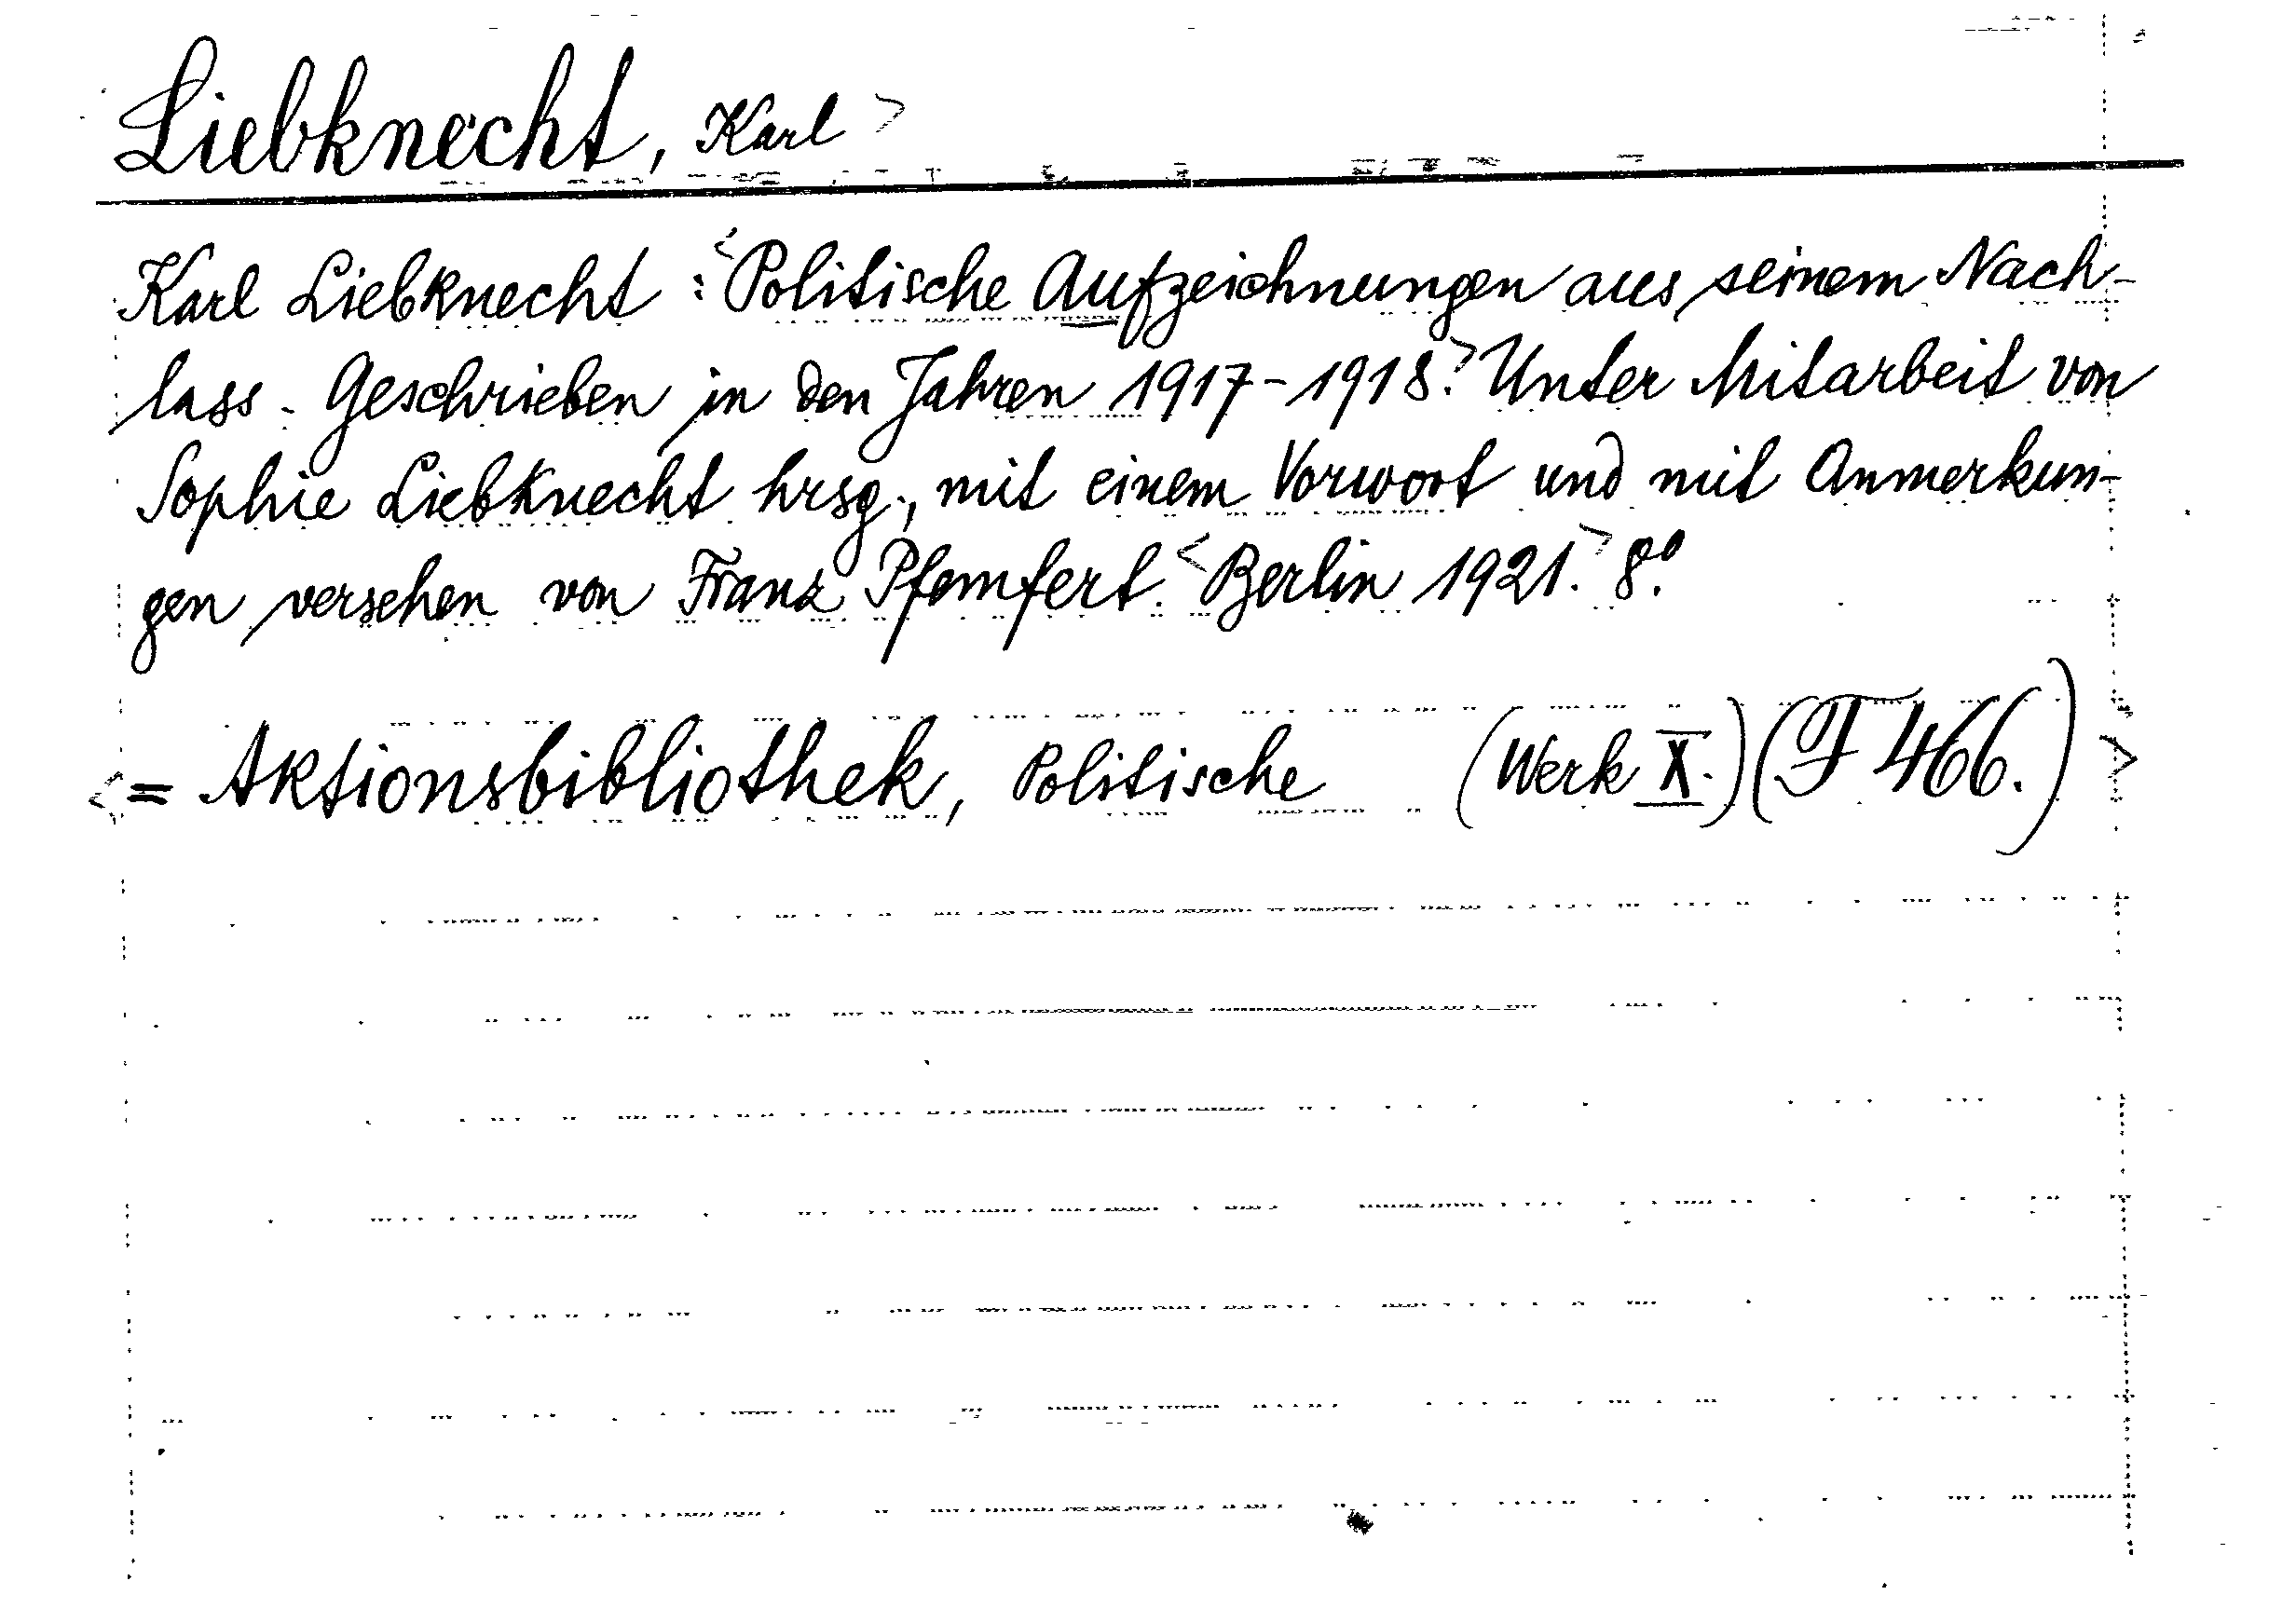 Liebknecht, Karl >
Karl Liebknecht : <Politische Aufzeichnungen aus seinem Nach-
lass. Geschrieben in den Jahren 1917-1918.> Unter Mitarbeit von
Sophie Liebknecht hrsg., mit einem Vorwort und mit Anmerkun-
gen versehen von Franz Pfemfert. <Berlin 1921.> 8º.
<= Aktionsbibliothek, Politische (Werk X.) (F 466.) >